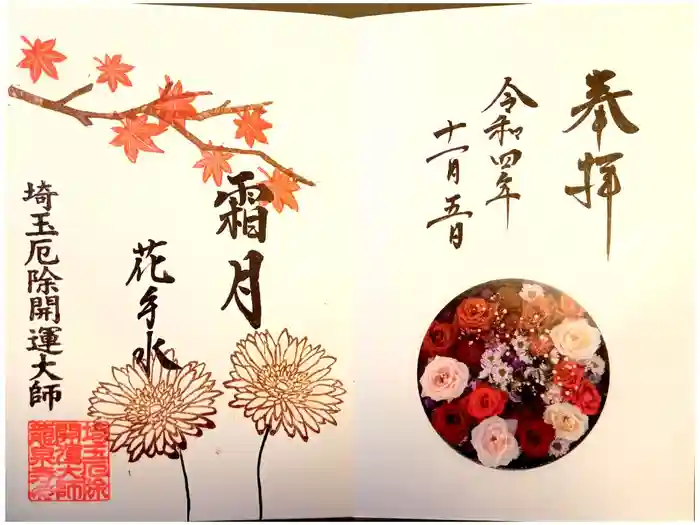 奉拝
令和四年
十一月五日
霜月
花手水
埼玉厄除開運大師
埼玉厄除
開運大師
龍泉寺